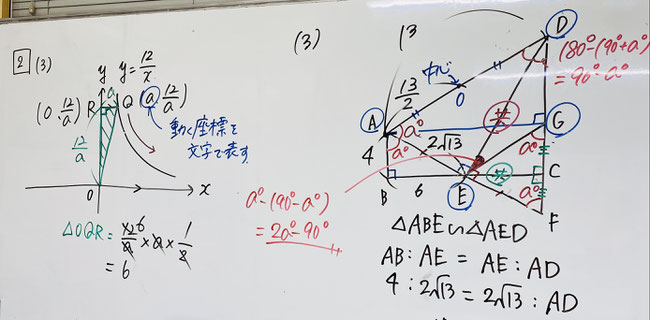 2 (3)
y y = 12/x
(0, 12/a) R a Q (a, 12/a)
12/a
動く座標を
文字で表す
O x
△OQR = 12/a × a × 1/2
= 6
(3)
13
D
180°-(90°+a°)
= 90°-a°
中心
13/2
O
共
A a° G
4 a° 2√13 a°
共
B 6 E C
a°
F
a°-(90°-a°)
= 2a°-90°
△ABE∽△AED
AB : AE = AE : AD
4 : 2√13 = 2√13 : AD